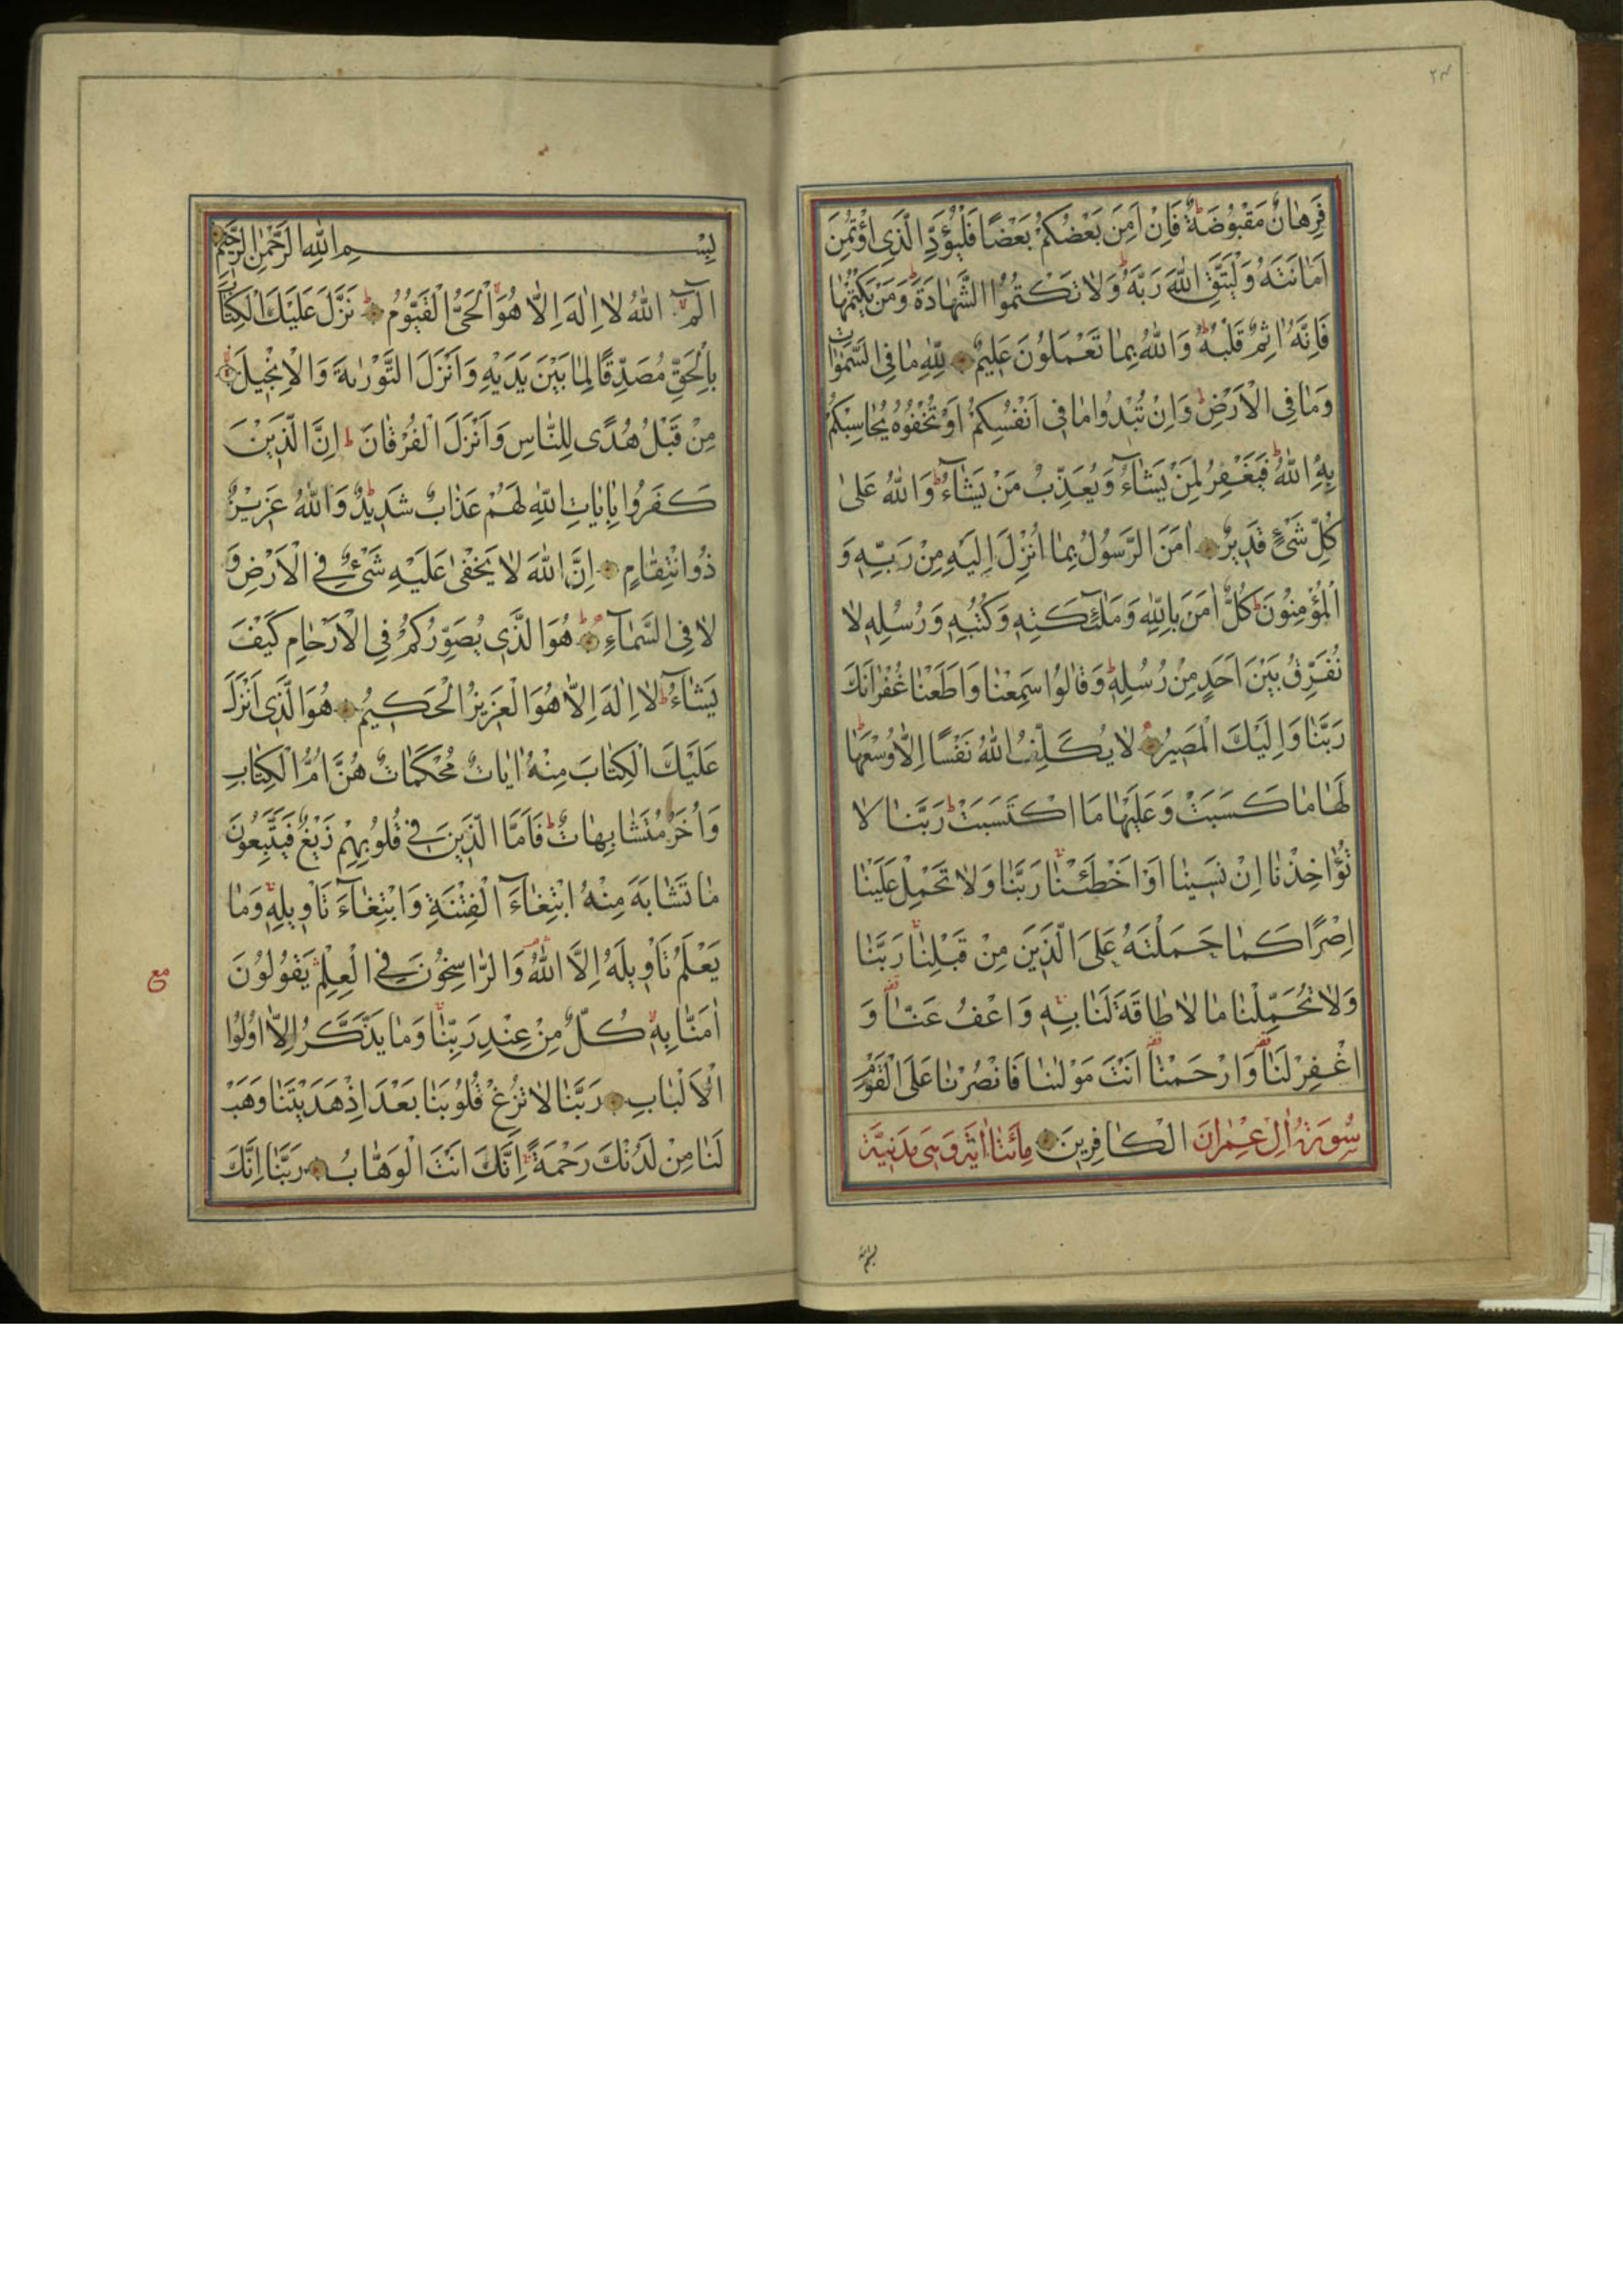 ٢٣
فَرِهَانٌ مَقْبُوضَةٌ فَاِنْ اَمِنَ بَعْضُكُمْ بَعْضًا فَلْيُؤَدِّ الَّذِى اؤْتُمِنَ
اَمَانَتَهُ وَلْيَتَّقِ اللّٰهَ رَبَّهُ وَلَا تَكْتُمُوا الشَّهَادَةَ وَمَنْ يَكْتُمْهَا
فَاِنَّهُ اٰثِمٌ قَلْبُهُ وَاللّٰهُ بِمَا تَعْمَلُونَ عَلِيمٌ لِلّٰهِ مَا فِى السَّمٰوَاتِ
وَمَا فِى الْاَرْضِ وَاِنْ تُبْدُوا مَا فِى اَنْفُسِكُمْ اَوْ تُخْفُوهُ يُحَاسِبْكُمْ
بِهِ اللّٰهُ فَيَغْفِرُ لِمَنْ يَشَآءُ وَيُعَذِّبُ مَنْ يَشَآءُ وَاللّٰهُ عَلٰى
كُلِّ شَىْءٍ قَدِيرٌ اٰمَنَ الرَّسُولُ بِمَا اُنْزِلَ اِلَيْهِ مِنْ رَبِّهِ وَ
الْمُؤْمِنُونَ كُلٌّ اٰمَنَ بِاللّٰهِ وَمَلٰٓئِكَتِهِ وَكُتُبِهِ وَرُسُلِهِ لَا
نُفَرِّقُ بَيْنَ اَحَدٍ مِنْ رُسُلِهِ وَقَالُوا سَمِعْنَا وَاَطَعْنَا غُفْرَانَكَ
رَبَّنَا وَاِلَيْكَ الْمَصِيرُ لَا يُكَلِّفُ اللّٰهُ نَفْسًا اِلَّا وُسْعَهَا
لَهَا مَا كَسَبَتْ وَعَلَيْهَا مَا اكْتَسَبَتْ رَبَّنَا لَا
تُؤَاخِذْنَا اِنْ نَسِينَا اَوْ اَخْطَئْنَا رَبَّنَا وَلَا تَحْمِلْ عَلَيْنَا
اِصْرًا كَمَا حَمَلْتَهُ عَلَى الَّذِينَ مِنْ قَبْلِنَا رَبَّنَا
وَلَا تُحَمِّلْنَا مَا لَا طَاقَةَ لَنَا بِهِ وَاعْفُ عَنَّا وَ
اغْفِرْ لَنَا وَارْحَمْنَا اَنْتَ مَوْلٰينَا فَانْصُرْنَا عَلَى الْقَوْمِ
سُورَةُ اٰلِ عِمْرَانَ الْكَافِرِينَ مِأَتَا اٰيَةٍ وَهِىَ مَدَنِيَّةٌ
بِسْمِ اللّٰهِ الرَّحْمٰنِ الرَّحِيمِ
الٓمٓ اللّٰهُ لَا اِلٰهَ اِلَّا هُوَ الْحَىُّ الْقَيُّومُ نَزَّلَ عَلَيْكَ الْكِتَابَ
بِالْحَقِّ مُصَدِّقًا لِمَا بَيْنَ يَدَيْهِ وَاَنْزَلَ التَّوْرٰيةَ وَالْاِنْجِيلَ
مِنْ قَبْلُ هُدًى لِلنَّاسِ وَاَنْزَلَ الْفُرْقَانَ اِنَّ الَّذِينَ
كَفَرُوا بِاٰيَاتِ اللّٰهِ لَهُمْ عَذَابٌ شَدِيدٌ وَاللّٰهُ عَزِيزٌ
ذُو انْتِقَامٍ اِنَّ اللّٰهَ لَا يَخْفٰى عَلَيْهِ شَىْءٌ فِى الْاَرْضِ وَ
لَا فِى السَّمَآءِ هُوَ الَّذِى يُصَوِّرُكُمْ فِى الْاَرْحَامِ كَيْفَ
يَشَآءُ لَا اِلٰهَ اِلَّا هُوَ الْعَزِيزُ الْحَكِيمُ هُوَ الَّذِى اَنْزَلَ
عَلَيْكَ الْكِتَابَ مِنْهُ اٰيَاتٌ مُحْكَمَاتٌ هُنَّ اُمُّ الْكِتَابِ
وَاُخَرُ مُتَشَابِهَاتٌ فَاَمَّا الَّذِينَ فِى قُلُوبِهِمْ زَيْغٌ فَيَتَّبِعُونَ
مَا تَشَابَهَ مِنْهُ ابْتِغَآءَ الْفِتْنَةِ وَابْتِغَآءَ تَاْوِيلِهِ وَمَا
يَعْلَمُ تَاْوِيلَهُ اِلَّا اللّٰهُ وَالرَّاسِخُونَ فِى الْعِلْمِ يَقُولُونَ
مع
اٰمَنَّا بِهِ كُلٌّ مِنْ عِنْدِ رَبِّنَا وَمَا يَذَّكَّرُ اِلَّا اُولُوا
الْاَلْبَابِ رَبَّنَا لَا تُزِغْ قُلُوبَنَا بَعْدَ اِذْ هَدَيْتَنَا وَهَبْ
لَنَا مِنْ لَدُنْكَ رَحْمَةً اِنَّكَ اَنْتَ الْوَهَّابُ رَبَّنَا اِنَّكَ